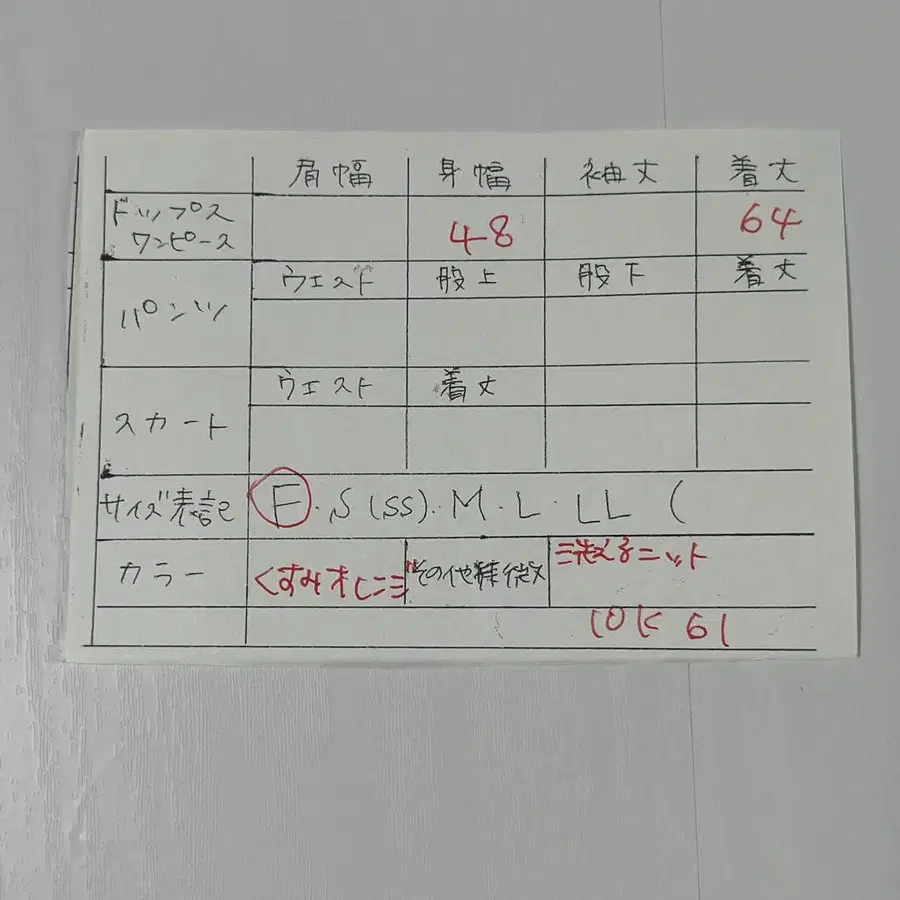 肩幅 身幅 袖丈 着丈
トップス
ワンピース
48 64
パンツ
ウエスト 股上 股下 着丈
スカート
ウエスト 着丈
サイズ表記 F・S(SS)・M・L・LL (
カラー くすみオレンジ その他特徴 洗えるニット
10K 61